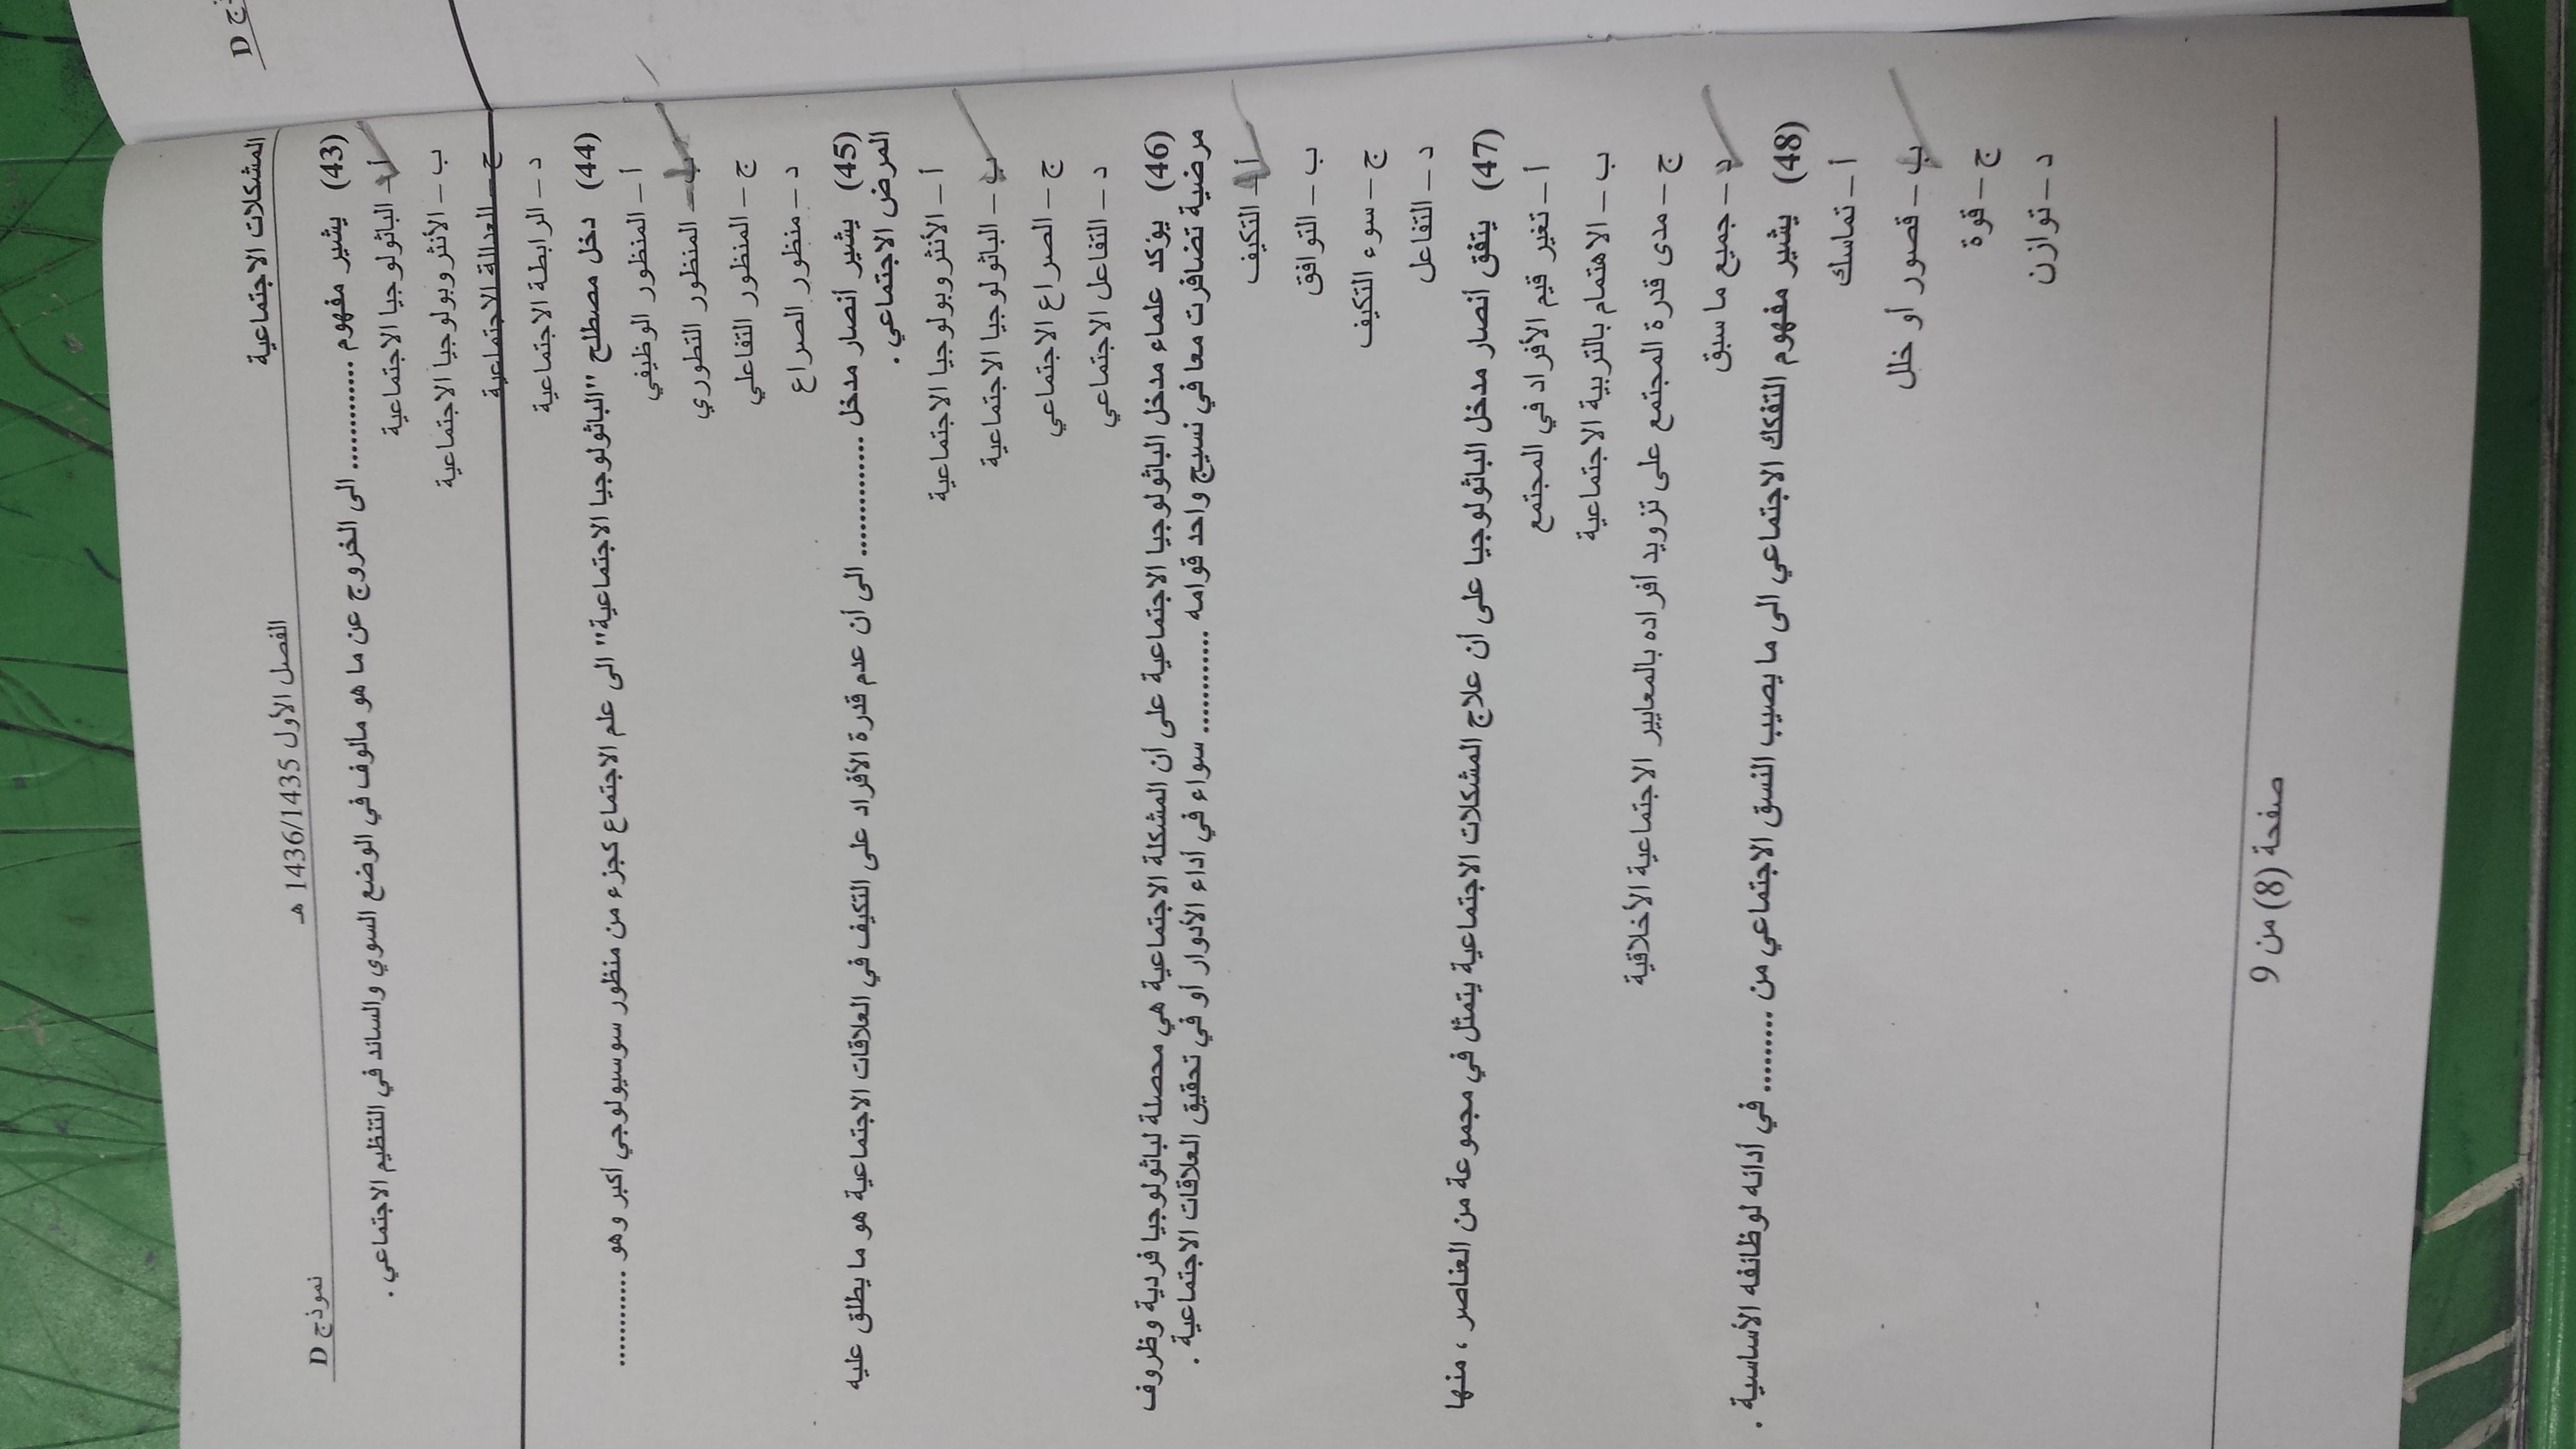 المشكلات الاجتماعية
الفصل الأول 1436/1435 هـ
نموذج D
(43) يشير مفهوم ............ الى الخروج عن ما هو مألوف في الوضع السوي والسائد في التنظيم الاجتماعي .
أ – الباثولوجيا الاجتماعية
ب – الأنثروبولوجيا الاجتماعية
ج – العدالة الاجتماعية
د – الرابطة الاجتماعية
(44) دخل مصطلح "الباثولوجيا الاجتماعية" الى علم الاجتماع كجزء من منظور سوسيولوجي أكبر وهو ............
أ – المنظور الوظيفي
ب – المنظور التطوري
ج – المنظور التفاعلي
د – منظور الصراع
(45) يشير أنصار مدخل .............. الى أن عدم قدرة الأفراد على التكيف في العلاقات الاجتماعية هو ما يطلق عليه
المرض الاجتماعي .
أ – الأنثروبولوجيا الاجتماعية
ب – الباثولوجيا الاجتماعية
ج – الصراع الاجتماعي
د – التفاعل الاجتماعي
(46) يؤكد علماء مدخل الباثولوجيا الاجتماعية على أن المشكلة الاجتماعية هي محصلة لباثولوجيا فردية وظروف
مرضية تضافرت معا في نسيج واحد قوامه ............ سواء في أداء الأدوار أو في تحقيق العلاقات الاجتماعية .
أ – التكيف
ب – التوافق
ج – سوء التكيف
د – التفاعل
(47) يتفق أنصار مدخل الباثولوجيا على أن علاج المشكلات الاجتماعية يتمثل في مجموعة من العناصر ، منها
أ – تغير قيم الأفراد في المجتمع
ب – الاهتمام بالتربية الاجتماعية
ج – مدى قدرة المجتمع على تزويد أفراده بالمعايير الاجتماعية الأخلاقية
د – جميع ما سبق
(48) يشير مفهوم التفكك الاجتماعي الى ما يصيب النسق الاجتماعي من .......... في أدائه لوظائفه الأساسية .
أ – تماسك
ب – قصور أو خلل
ج – قوة
د – توازن
صفحة (8) من 9